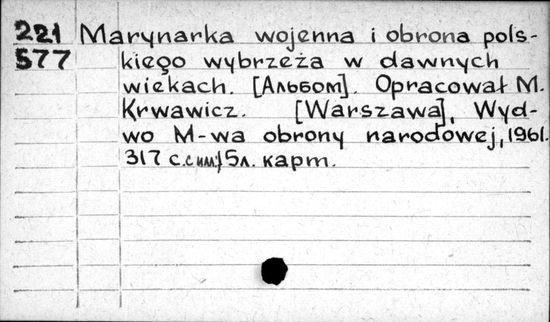 221 Marynarka wojenna i obrona pols-
577 kiego wybrzeża w dawnych
wiekach. [Альбом]. Opracował M.
Krwawicz. [Warszawa], Wyd-
wo M-wa obrony narodowej, 1961.
317 с. с илл; 5л. карт.